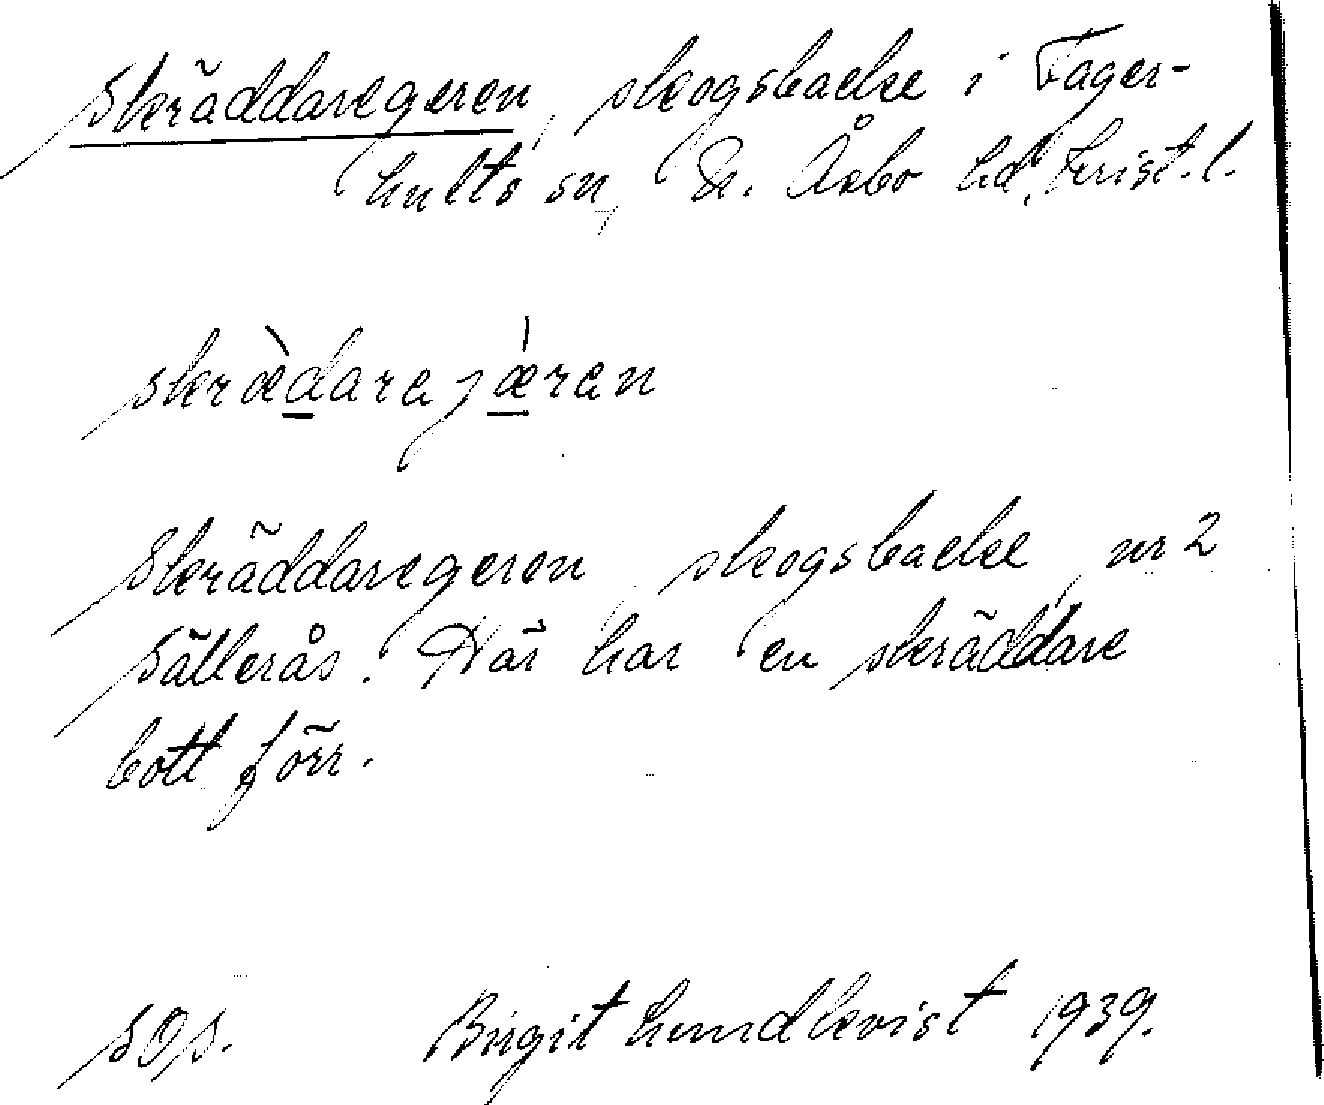 Skräddaregeren, skogsbacke i Fager-
hults sn, N. Åsbo hd, Krist. l.
skræ̀darejǽren
Skräddaregeren, skogsbacke, nr 2
Sällerås. Här har en skräddare
bott förr.
SOS. Birgit Lundkvist 1939.